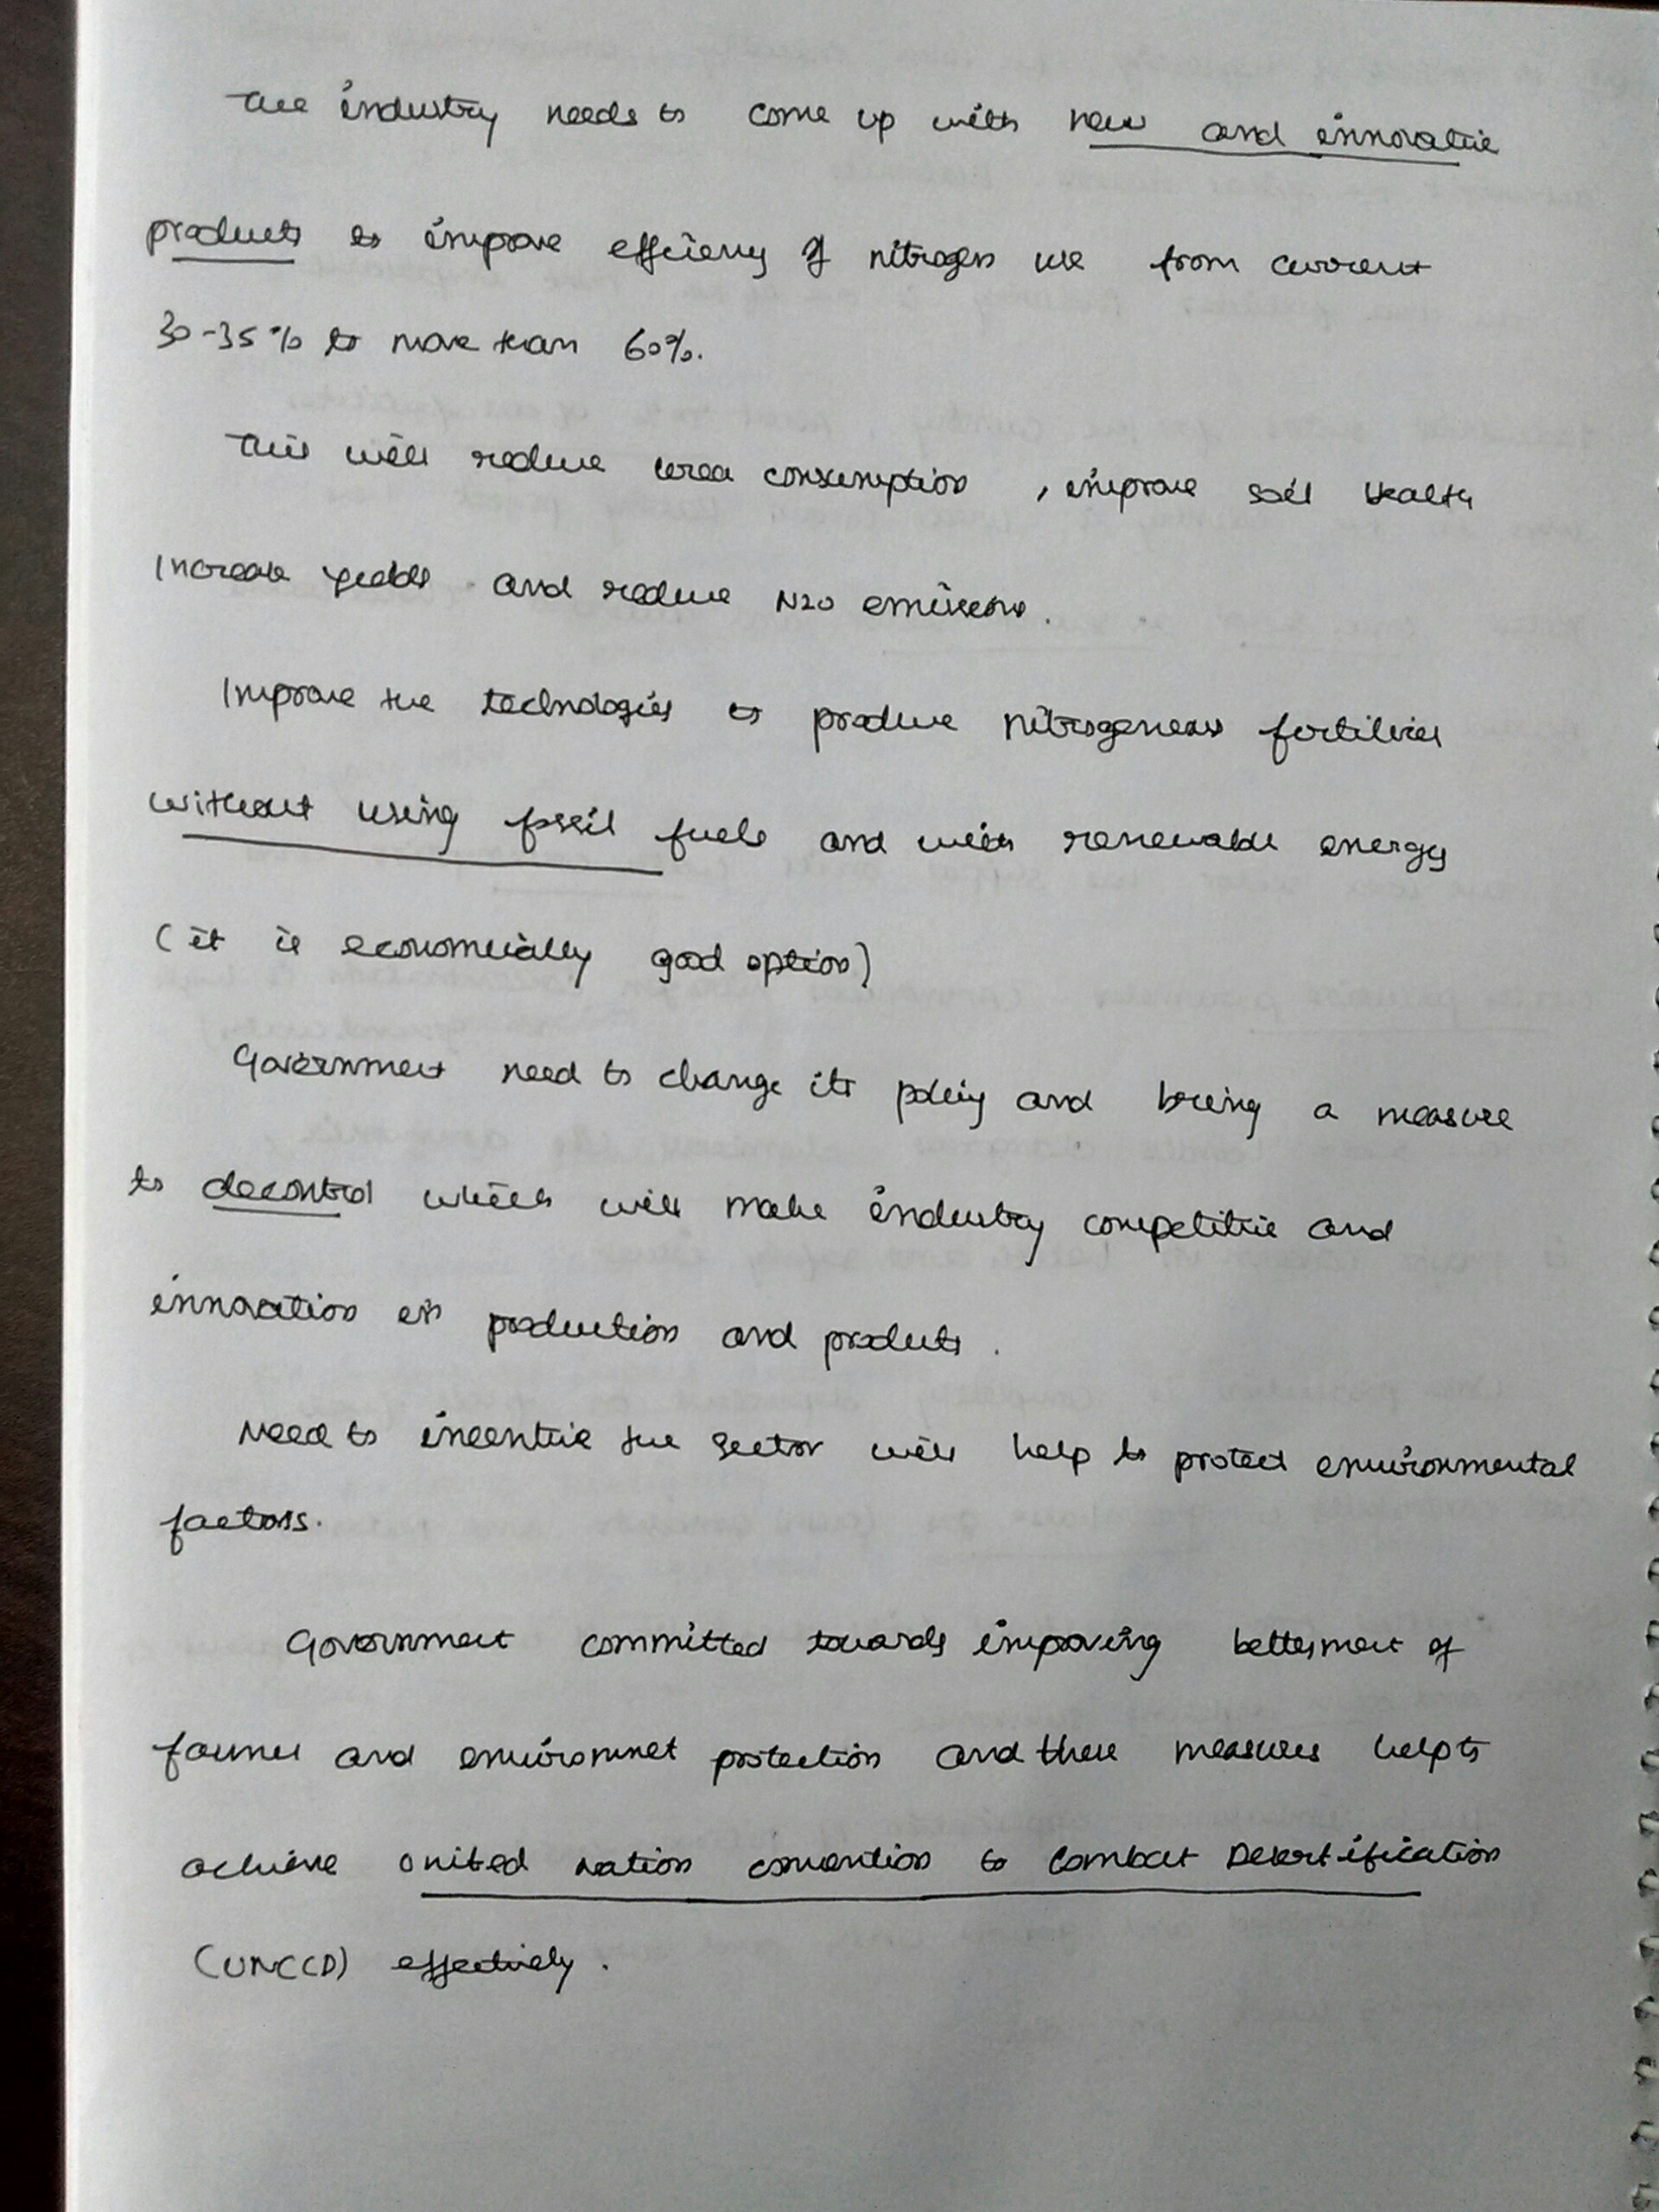 The industry needs to come up with new and innovative
products to improve efficiency of nitrogen use from current
30-35% to more than 60%.
This will reduce urea consumption, improve soil health
Increase yields and reduce N2O emissions.
Improve the technologies to produce nitrogenous fertilizer
without using fossil fuels and with renewable energy
(it is economically good option)
Government need to change its policy and bring a measure
to decontrol which will make industry competitive and
innovation in production and products.
Need to incentive the sector will help to protect environmental
factors.
Government committed towards improving betterment of
farmer and enviromnet protection and these measures helps
achieve United Nation convention to Combat Desertification
(UNCCD) effectively.